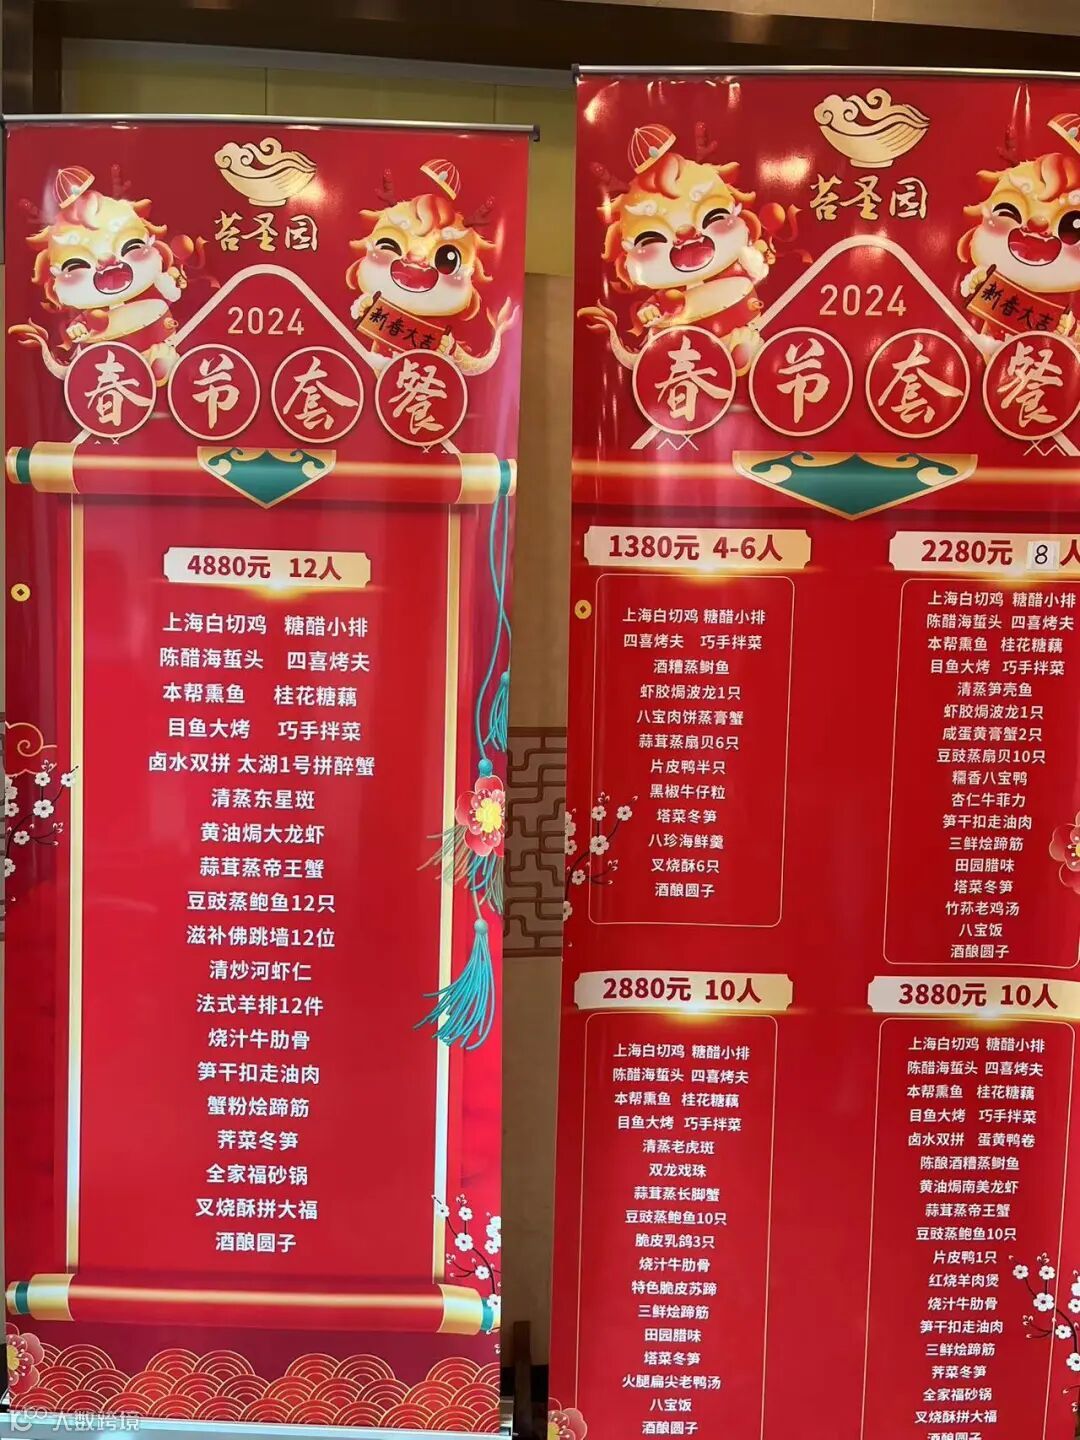 苔圣园
新春大吉
2024
春节套餐
4880元 12人
上海白切鸡 糖醋小排
陈醋海蜇头 四喜烤夫
本帮熏鱼 桂花糖藕
目鱼大烤 巧手拌菜
卤水双拼 太湖1号拼醉蟹
清蒸东星斑
黄油焗大龙虾
蒜茸蒸帝王蟹
豆豉蒸鲍鱼12只
滋补佛跳墙12位
清炒河虾仁
法式羊排12件
烧汁牛肋骨
笋干扣走油肉
蟹粉烩蹄筋
荠菜冬笋
全家福砂锅
叉烧酥拼大福
酒酿圆子
苔圣园
新春大吉
2024
春节套餐
1380元 4-6人
上海白切鸡 糖醋小排
四喜烤夫 巧手拌菜
酒糟蒸鲥鱼
虾胶焗波龙1只
八宝肉饼蒸膏蟹
蒜茸蒸扇贝6只
片皮鸭半只
黑椒牛仔粒
塔菜冬笋
八珍海鲜羹
叉烧酥6只
酒酿圆子
2280元 8人
上海白切鸡 糖醋小排
陈醋海蜇头 四喜烤夫
本帮熏鱼 桂花糖藕
目鱼大烤 巧手拌菜
清蒸笋壳鱼
虾胶焗波龙1只
咸蛋黄膏蟹2只
豆豉蒸扇贝10只
糯香八宝鸭
杏仁牛菲力
笋干扣走油肉
三鲜烩蹄筋
田园腊味
塔菜冬笋
竹荪老鸡汤
八宝饭
酒酿圆子
2880元 10人
上海白切鸡 糖醋小排
陈醋海蜇头 四喜烤夫
本帮熏鱼 桂花糖藕
目鱼大烤 巧手拌菜
清蒸老虎斑
双龙戏珠
蒜茸蒸长脚蟹
豆豉蒸鲍鱼10只
脆皮乳鸽3只
烧汁牛肋骨
特色脆皮苏蹄
三鲜烩蹄筋
田园腊味
塔菜冬笋
火腿扁尖老鸭汤
八宝饭
酒酿圆子
3880元 10人
上海白切鸡 糖醋小排
陈醋海蜇头 四喜烤夫
本帮熏鱼 桂花糖藕
目鱼大烤 巧手拌菜
卤水双拼 蛋黄鸭卷
陈酿酒糟蒸鲥鱼
黄油焗南美龙虾
蒜茸蒸帝王蟹
豆豉蒸鲍鱼10只
片皮鸭1只
红烧羊肉煲
烧汁牛肋骨
笋干扣走油肉
三鲜烩蹄筋
荠菜冬笋
全家福砂锅
叉烧酥拼大福
酒酿圆子
大数跨境